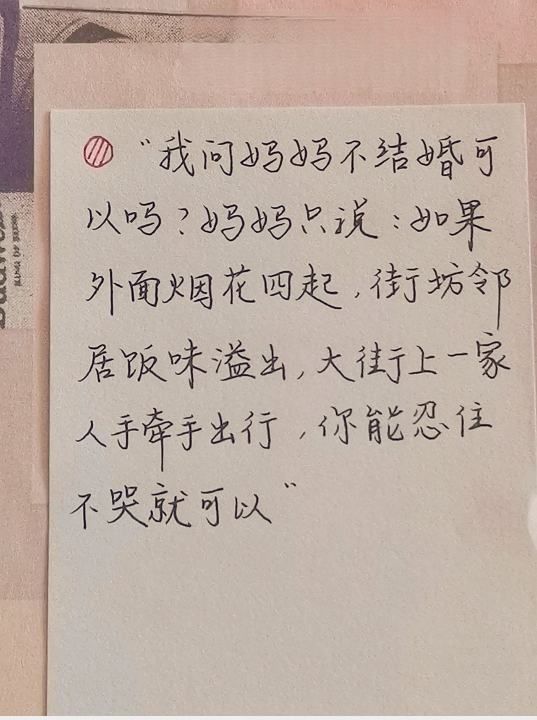 “我问妈妈不结婚可
以吗？妈妈只说：如果
外面烟花四起，街坊邻
居饭味溢出，大街上一家
人手牵手出行，你能忍住
不哭就可以”